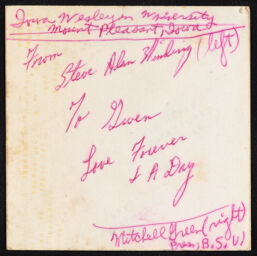 Iowa Wesleyen University
Mount Pleasant, Iowa
From
Steve Alan Winling (left)
To Gwen
Love Forever
& A Day
Mitchell Green (right)
Pres, B.S.U)